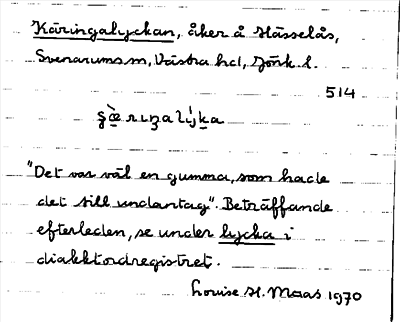 Käringalyckan, åker å Hässelås,
Svenarums sn, Västra hd, Jönk. l.
514
"Det var väl en gumma, som hade
det till undantag". Beträffande
efterleden, se under lycka i
dialektordregistret.
Louise H. Maas 1970